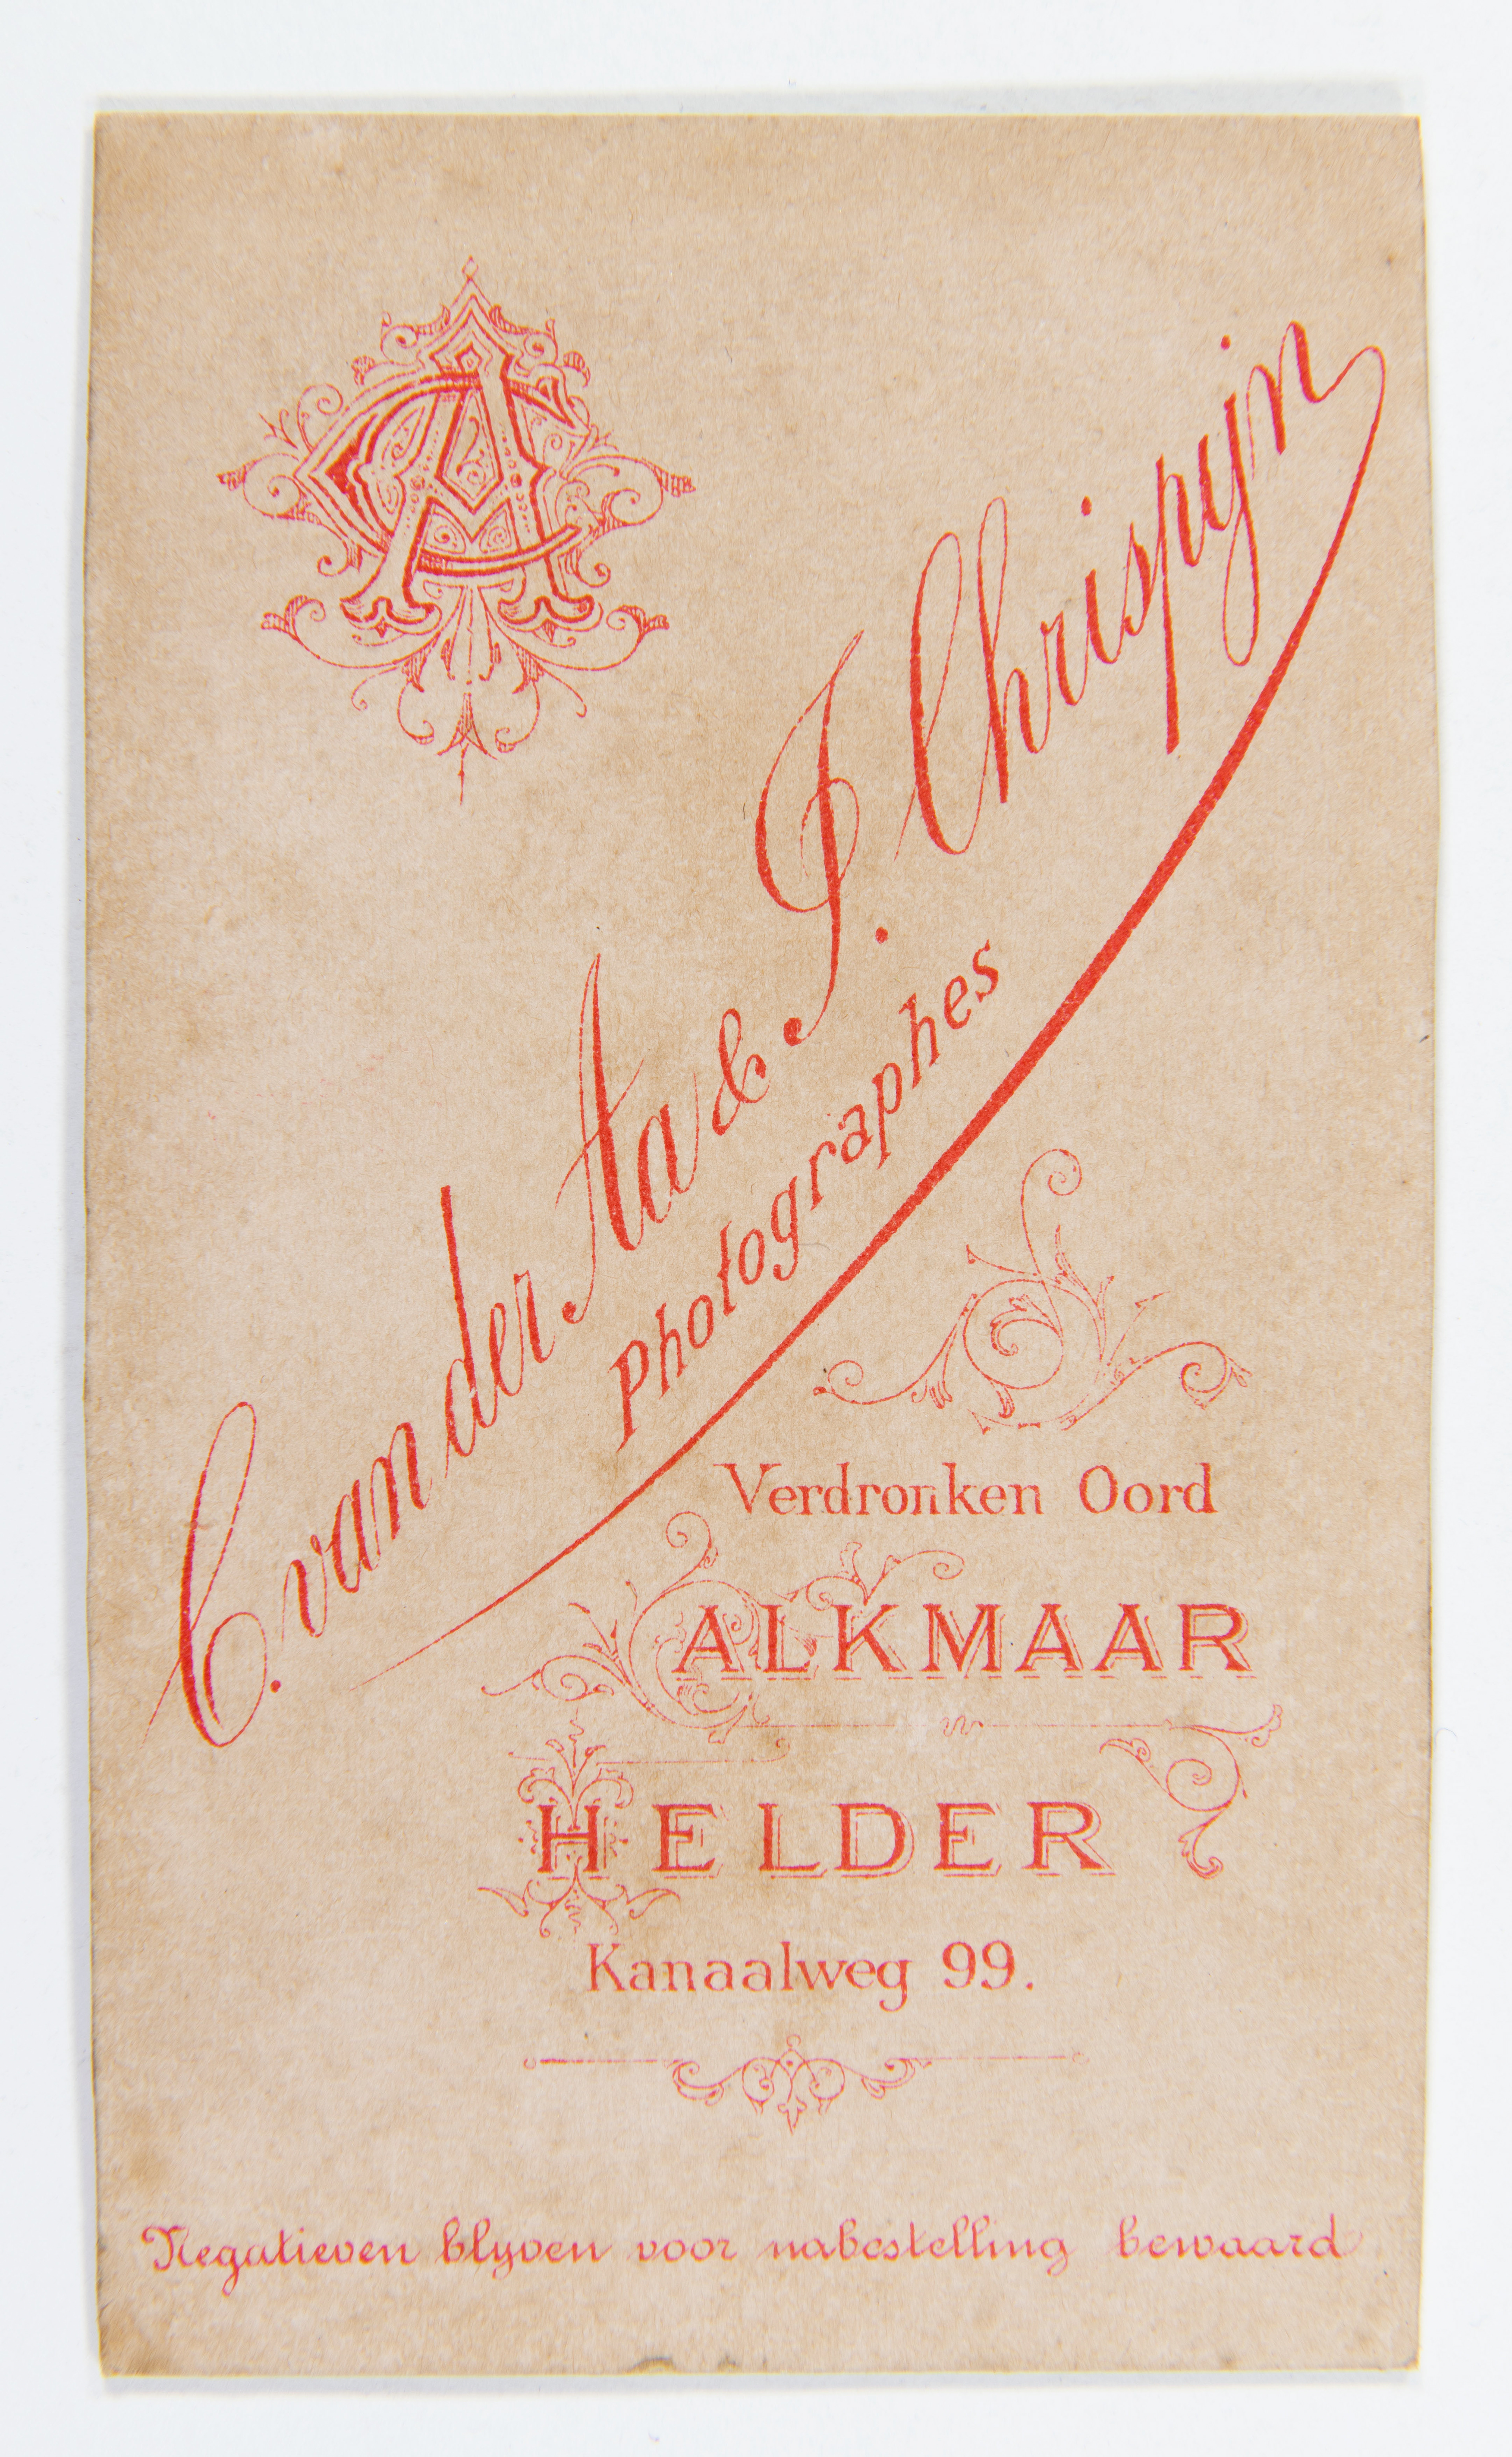 CA
C. van der Aa & J. Chrispijn
Photographes
Verdronken Oord
ALKMAAR
HELDER
Kanaalweg 99.
Negatieven blyven voor nabestelling bewaard